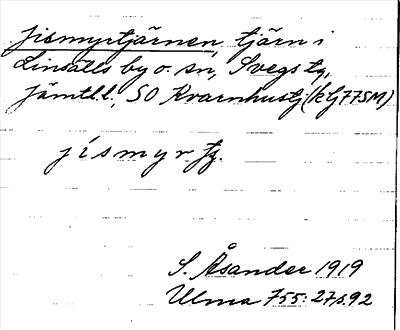 Jismyrtjärnen, tjärn i
Linsälls by o. sn, Svegs tg,
Jämtl.l., SO Kvarnhustj (k Lj77SM)
jismyrtj.
S. Åsander 1919
Ulma 755:27 s.92